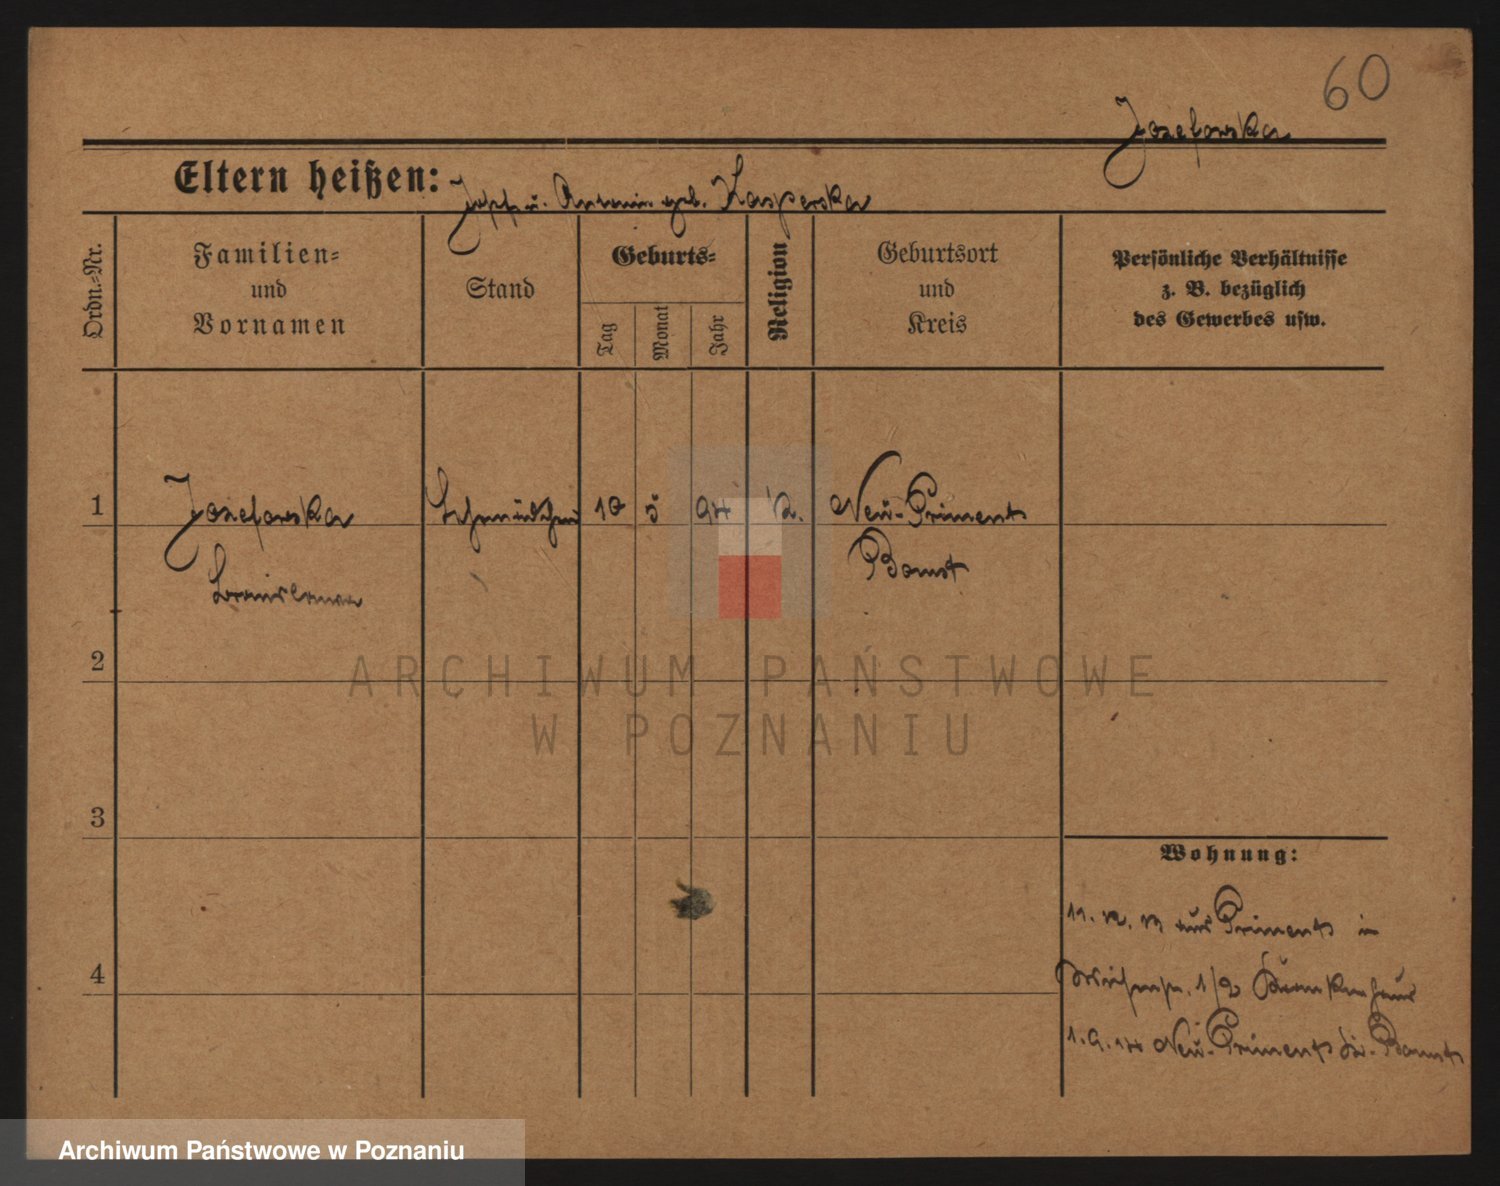 60
Josefowska
Eltern heißen: Josef u. Antonie geb. Kasperska
Ordn.-Nr.
Familien-
und
Vornamen
Stand
Geburts-
Tag
Monat
Jahr
Religion
Geburtsort
und
Kreis
Persönliche Verhältnisse
z. B. bezüglich
des Gewerbes usw.
1 Josefowska 10 5 94 k. Neu-Priment
Bomst
2
3
4
Wohnung:
11. 12. 13 aus Priment in
1/2 Krankenhaus
1. 9. 14 Neu-Priment Kr. Bomst
ARCHIWUM PAŃSTWOWE
W POZNANIU
Archiwum Państwowe w Poznaniu